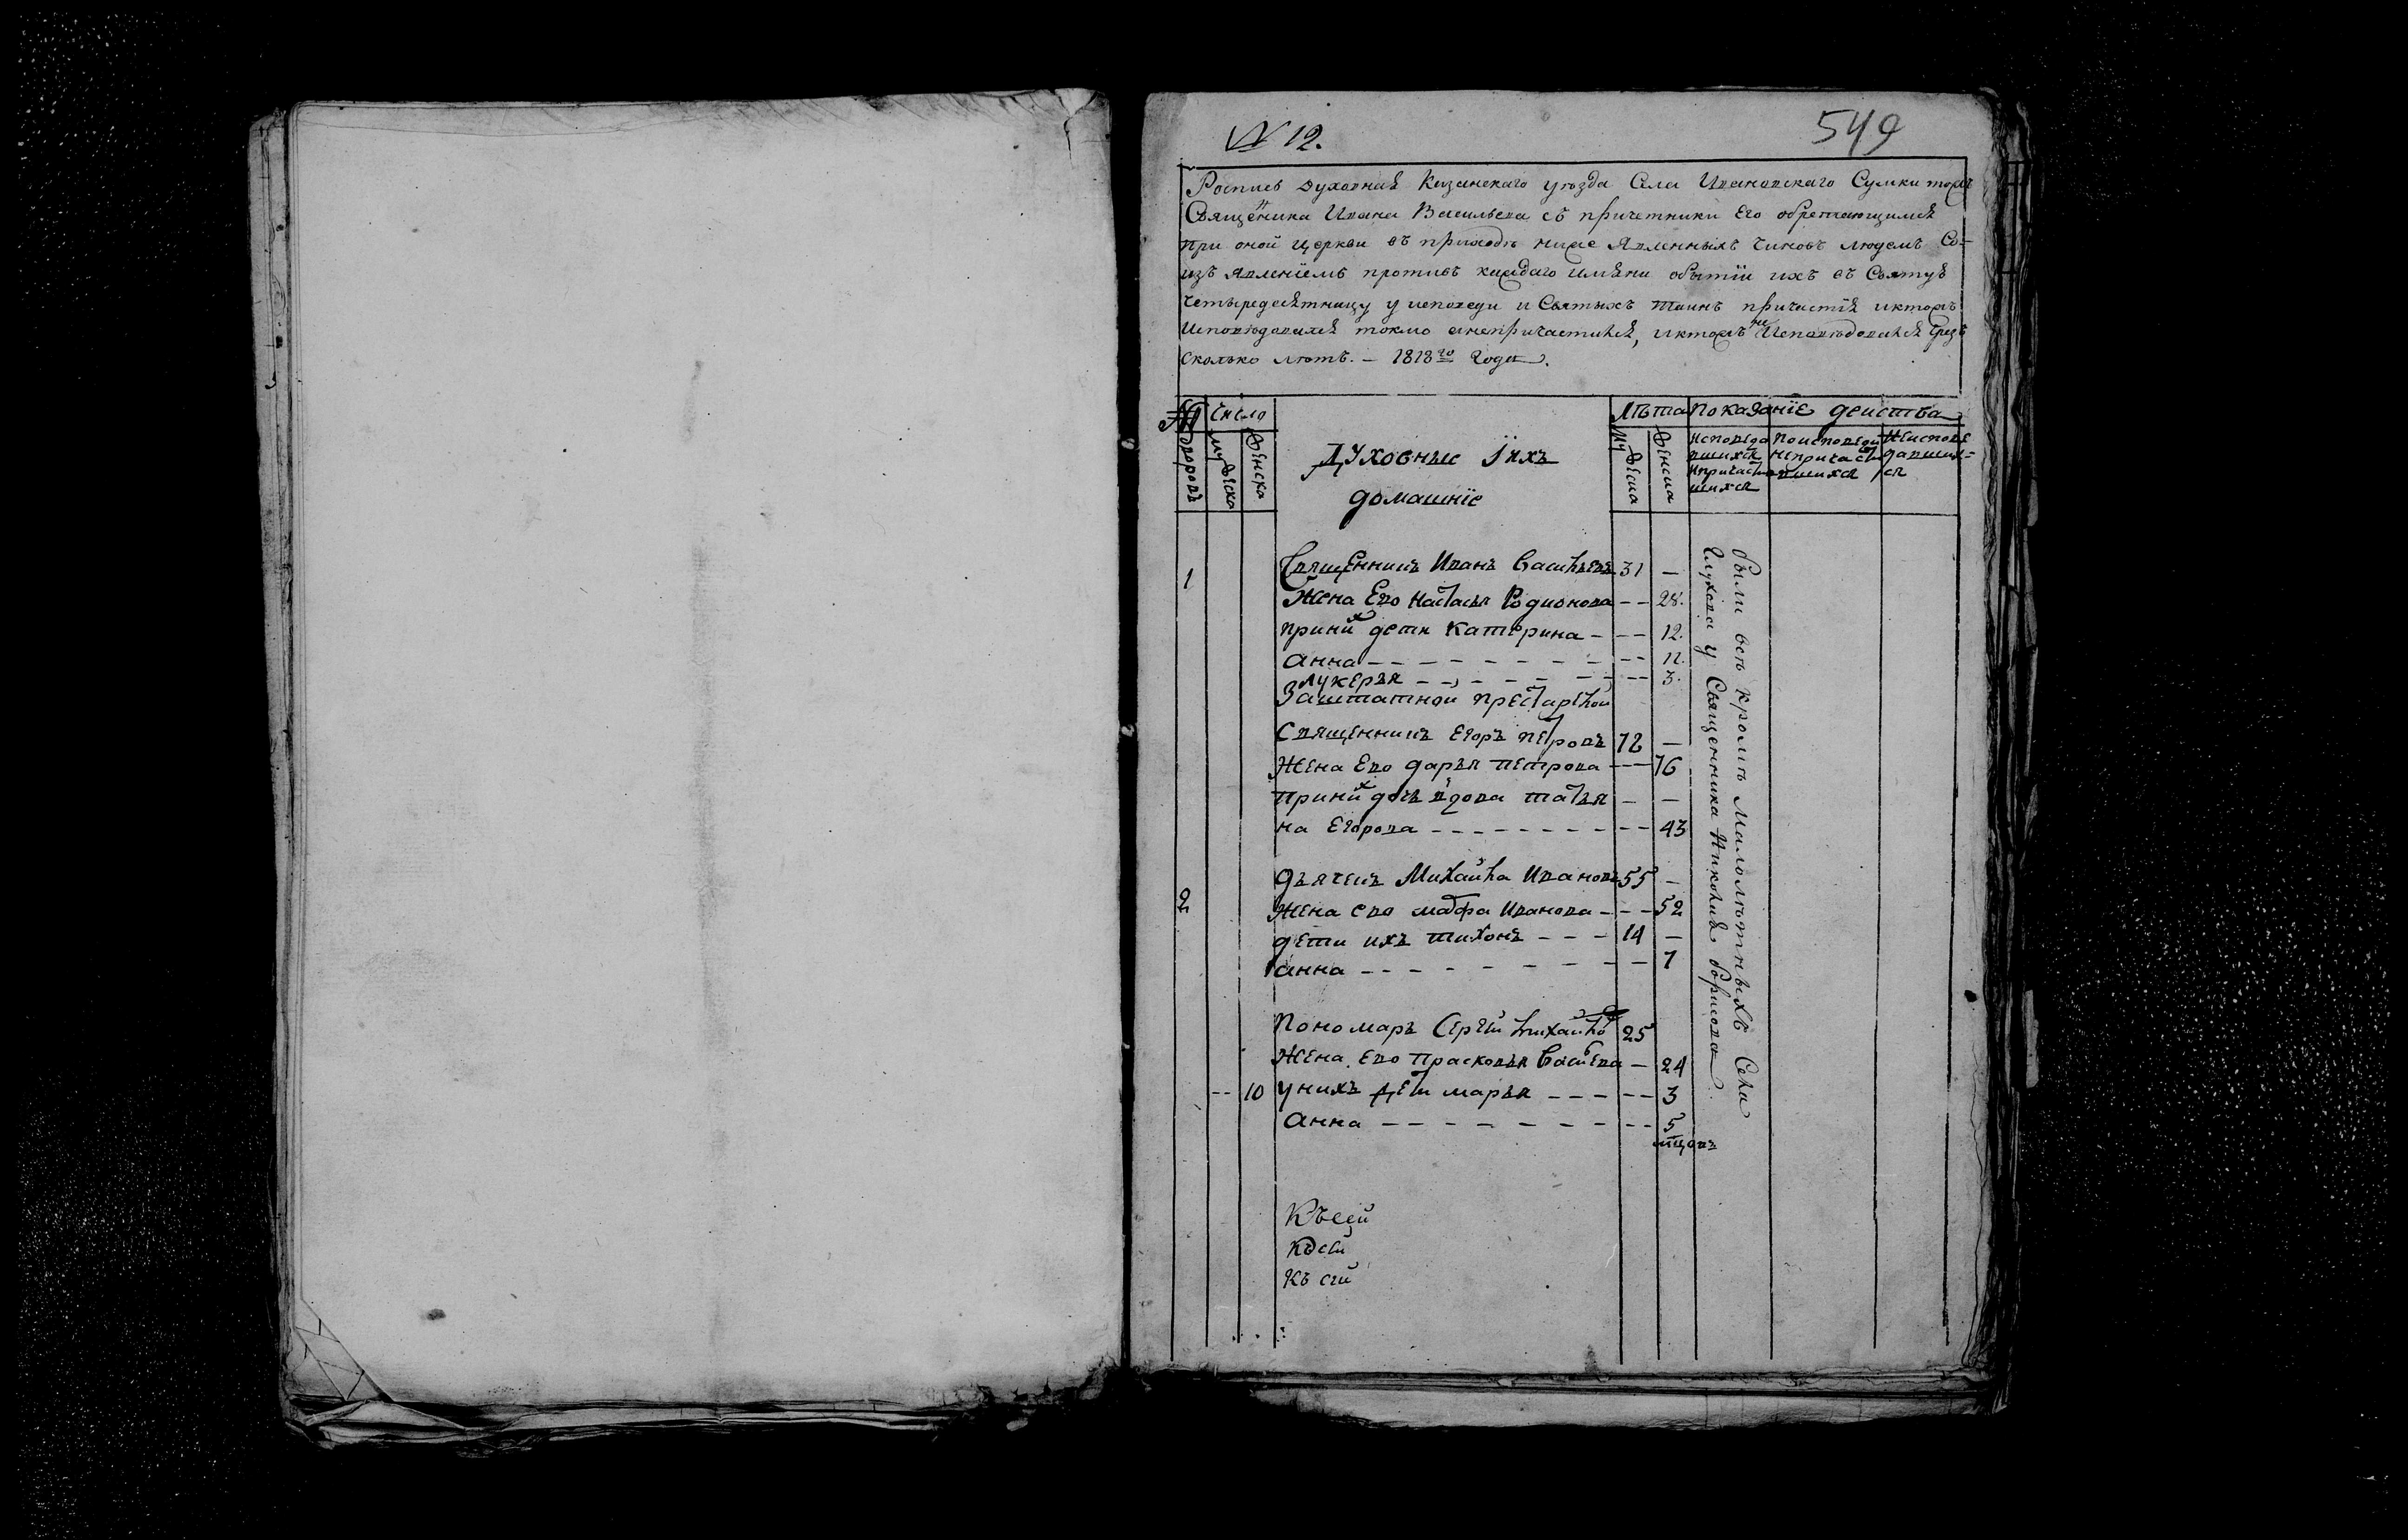 № 12.
549
Роспись духовная Казанскаго уѣзда Села Ивановскаго Сумки тожъ
Священника Ивана Васильева съ причетники Его обретающимся
при оной Церкви въ приходѣ ниже Явленныхъ Чиновъ людемъ Со-
изъ явленїемъ противъ каждаго имяни обытїи ихъ въ Святую
Четыредесятницу у исповеди и Святыхъ Таинъ причастїя иктожъ
Исповѣдовался токмо анепричастился, иктожъ не Исповѣдовался
сколько лѣтъ. – 1818го Года.
Число
Лѣта Показанїе деиства
дворовъ
Мужеска
Женска
Духовные Їихъ
домашнїе
Мужеска
Женска
Исповеда
вшихся
Ипричасти
вшихся
Поисповеди
непричасти
вшихся
Неиспове
давших=
ся
1 Священникъ Иванъ Васильевъ 31 –
Жена Ево Настасья Родионова – – 28.
прини х дети Катерина – – – 12.
Анна – – – – – – – – – – 11.
Лукерья – – – – – – – – – 3.
Заштатной престарелой
Священникъ Егоръ Петровъ 72 –
Жена Ево дарья Петрова – – 76
прини х дочь вдова татья – –
на Егорова – – – – – – – – – – 43
2 дьячекъ Михаила Ивановъ 55 –
Жена ево мавфа Иванова – – – 52
дети ихъ тихонъ – – – 14 –
анна – – – – – – – – – 7
Пономарь Сергей Михайло 25
Жена Ево Прасковья Васильева – 24
– – 10 унихъ Дети марья – – – – – 3
Анна – – – – – – – – – 5
мцовъ
Къ сей
Къ сей
Къ сей
были всѣ кромѣ Малолѣтныхъ Села
Глухова у Священника Николая Борисова